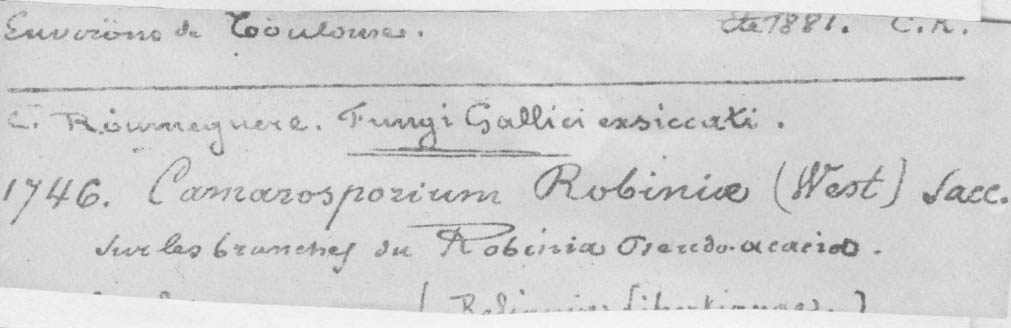 Environs de Toulouse. Eté 1881. C. R.
C. Roumeguere. Fungi Gallici exsiccati.
1746. Camarosporium Robiniæ (West) Sacc.
Sur les branches du Robinia Pseudo-acacia.
(Reliquiæ Libertianae.)